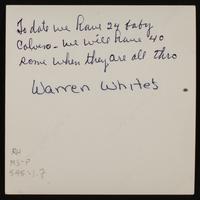 To date we have 24 baby
Calves - we will have 40
some when they are all thro
Warren White's
RH
MS-P
545-1.7